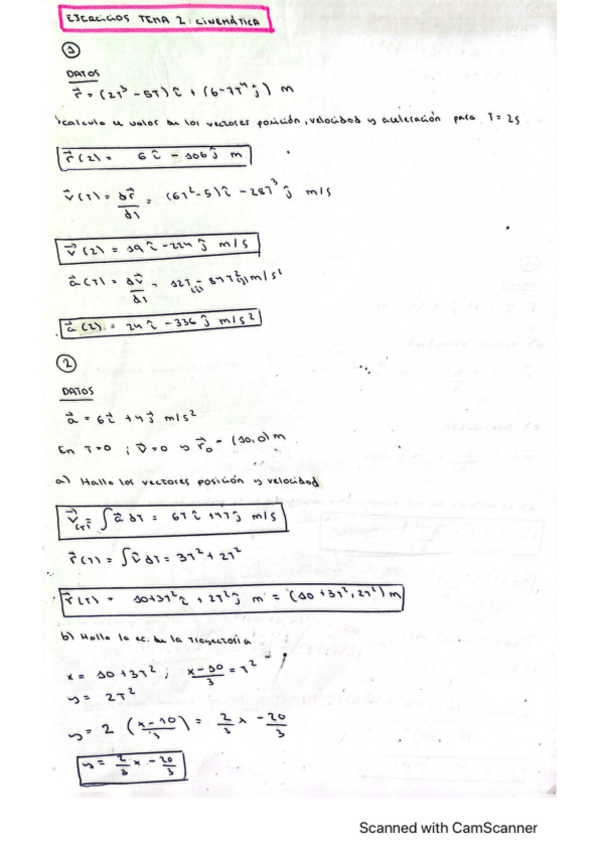 EJERCICIOS TEMA 2: CINEMÁTICA
1
DATOS
r⃗ = (2T³ - 5T) î + (6-7T⁴ ĵ) m
calcula el valor de los vectores posición, velocidad y aceleración para T = 2s
r⃗(2) = 6 î - 106 ĵ m
v⃗(T) = dr⃗/dT = (6T²-5) î - 28T³ ĵ m/s
v⃗(2) = 19 î - 224 ĵ m/s
a⃗(T) = dv⃗/dT = 12T(i) - 84T²(j) m/s²
a⃗(2) = 24 î - 336 ĵ m/s²
2
DATOS
a⃗ = 6 i⃗ + 4 j⃗ m/s²
En T=0 ; v⃗=0 y r⃗₀ = (10,0) m
a) Halla los vectores posición y velocidad
v⃗(T) = ∫ a⃗ dT = 6T î + 4T ĵ m/s
r⃗(T) = ∫ v⃗ dT = 3T² + 2T²
r⃗(T) = 10+3T² î + 2T² ĵ m = (10 + 3T², 2T²) m
b) Halla la ec. de la trayectoria
x = 10 + 3T² ; x-10/3 = T²
y = 2T²
y = 2 (x-10/3) = 2/3 x - 20/3
y = 2/3 x - 20/3
Scanned with CamScanner